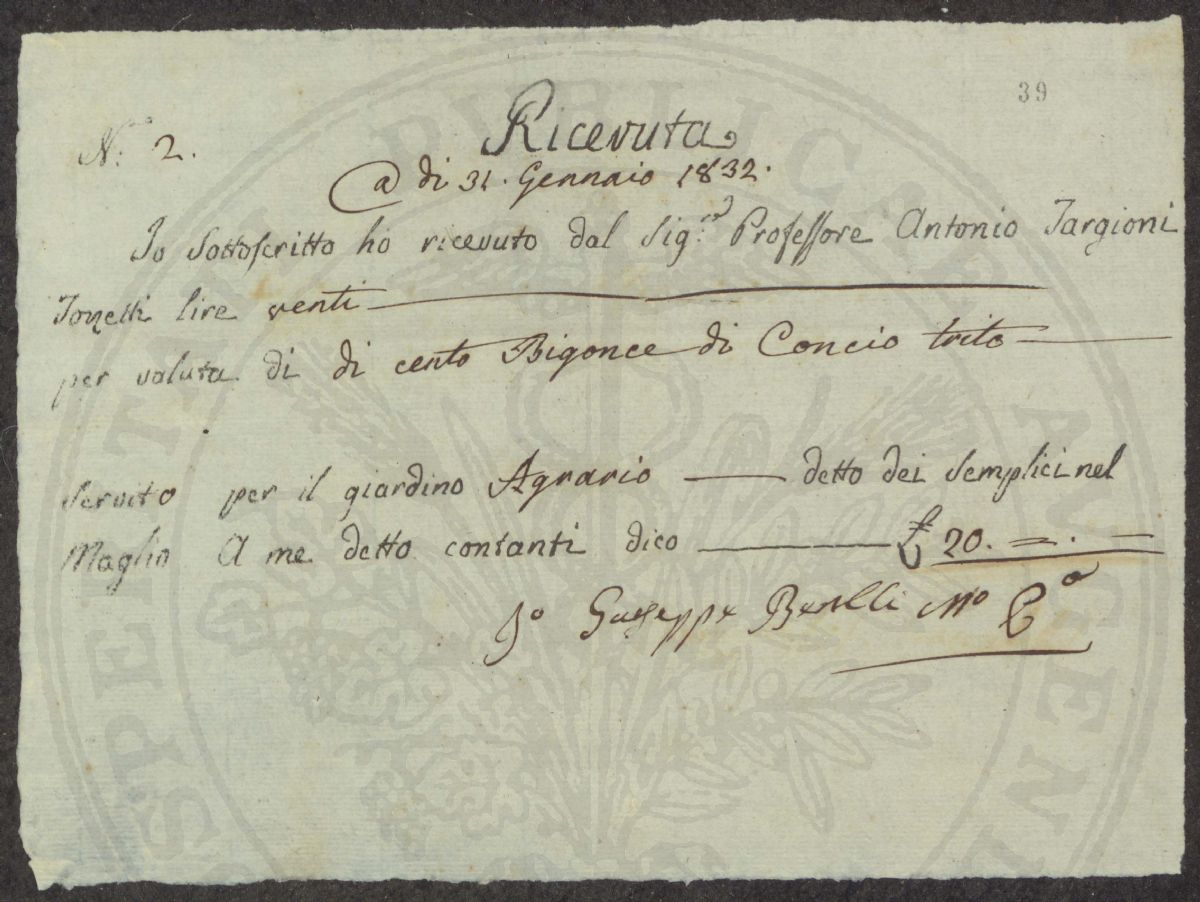 39
Nº: 2.
Ricevuta
a di 31. Gennaio 1832.
Io Sottoscritto ho ricevuto dal Sig.re Professore Antonio Targioni
Tozzetti lire venti
per valuta di di cento Bigonce di Concio trito
servito per il giardino Agrario — detto dei Semplici nel
Maglio A me detto contanti dico — £ 20. = . —
Io Giuseppe Mo Po